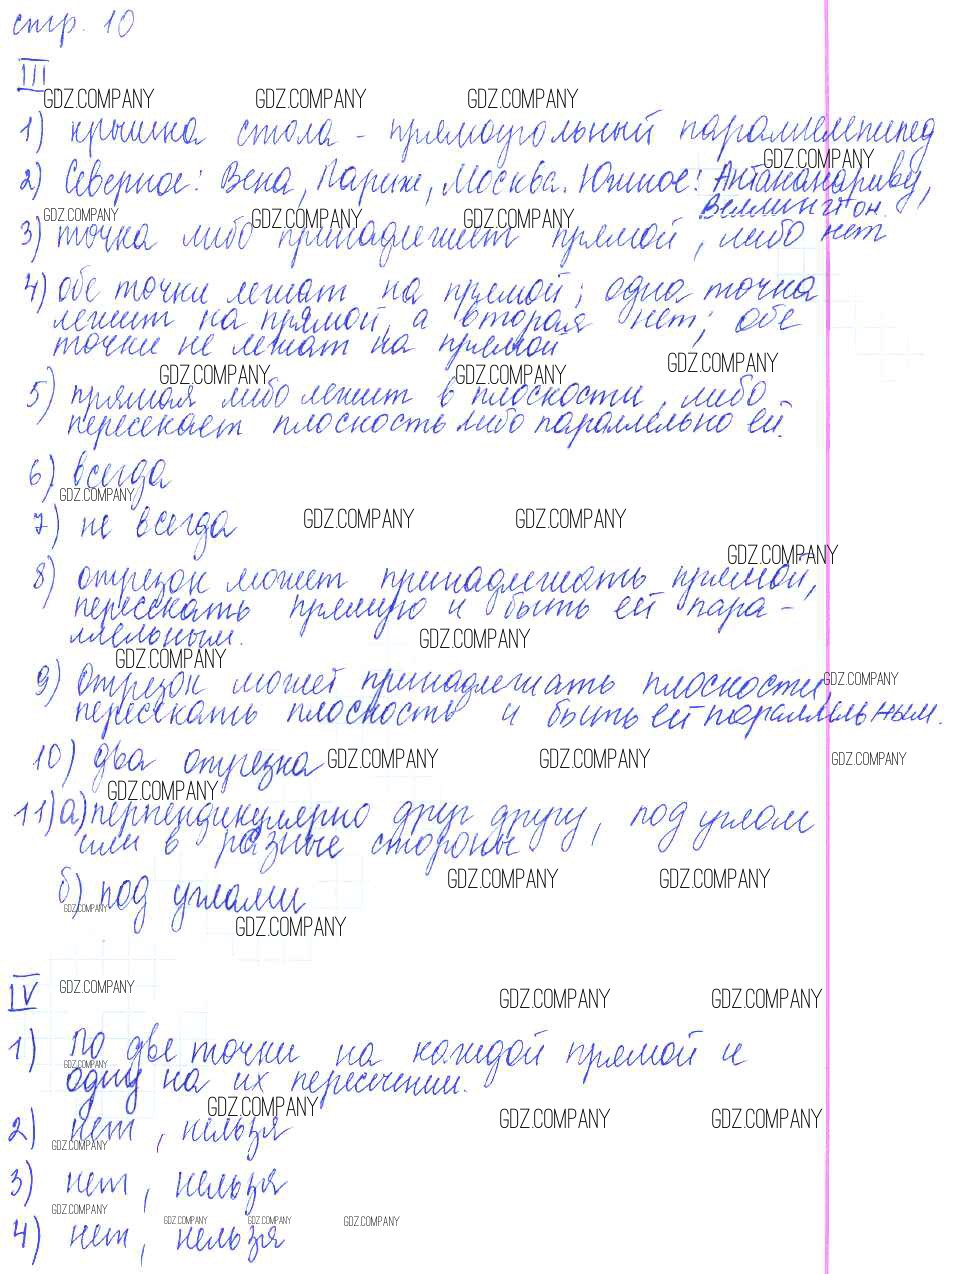 стр. 10
III
GDZ.COMPANY GDZ.COMPANY GDZ.COMPANY
1) крышка стола - прямоугольный параллелепипед
GDZ.COMPANY
2) Северное: Вена, Париж, Москва. Южное: Антананариву,
Веллингтон.
GDZ.COMPANY GDZ.COMPANY GDZ.COMPANY
3) точка либо принадлежит прямой, либо нет
4) обе точки лежат на прямой; одна точка
лежит на прямой, а вторая нет; обе
точки не лежат на прямой
GDZ.COMPANY
GDZ.COMPANY GDZ.COMPANY
5) прямая либо лежит в плоскости, либо
пересекает плоскость либо параллельно ей.
6) всегда
GDZ.COMPANY
7) не всегда
GDZ.COMPANY GDZ.COMPANY
GDZ.COMPANY
8) отрезок может принадлежать прямой,
пересекать прямую и быть ей пара-
ллельным.
GDZ.COMPANY
GDZ.COMPANY
9) Отрезок может принадлежать плоскости,
GDZ.COMPANY
пересекать плоскость и быть ей параллельным.
10) два отрезка
GDZ.COMPANY GDZ.COMPANY GDZ.COMPANY
GDZ.COMPANY
11) а) перпендикулярно друг другу, под углом
или в разные стороны
GDZ.COMPANY GDZ.COMPANY
б) под углами
GDZ.COMPANY
GDZ.COMPANY
IV
GDZ.COMPANY
GDZ.COMPANY GDZ.COMPANY
1) По две точки на каждой прямой и
GDZ.COMPANY
одну на их пересечении.
GDZ.COMPANY GDZ.COMPANY GDZ.COMPANY
2) нет, нельзя
GDZ.COMPANY
3) нет, нельзя
GDZ.COMPANY
GDZ.COMPANY GDZ.COMPANY GDZ.COMPANY
4) нет, нельзя